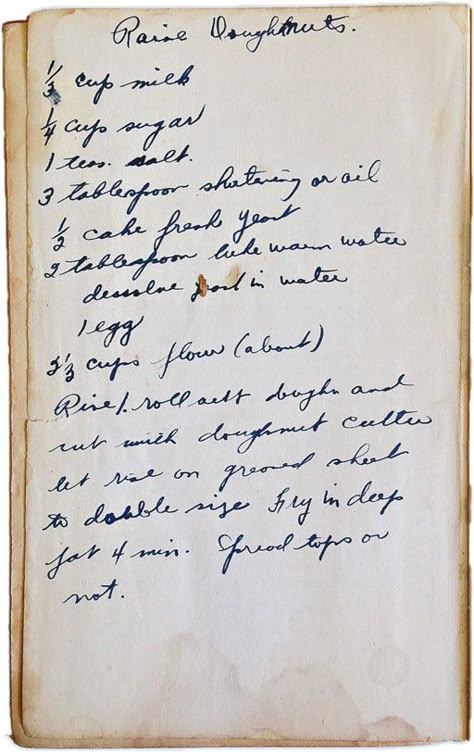 Raise Doughnuts.
1/3 cup milk
1/4 cup sugar
1 teas. salt.
3 tablespoon shortening or oil
1/2 cake fresh yeast
2 tablespoon luke warm water
dessolve yeast in water
1 egg
2 1/3 cups flour (about)
Rise 1. roll out doughn and
cut with doughnut cutter
let rise on greased sheet
to double size Fry in deep
fat 4 min. Spread tops or
not.